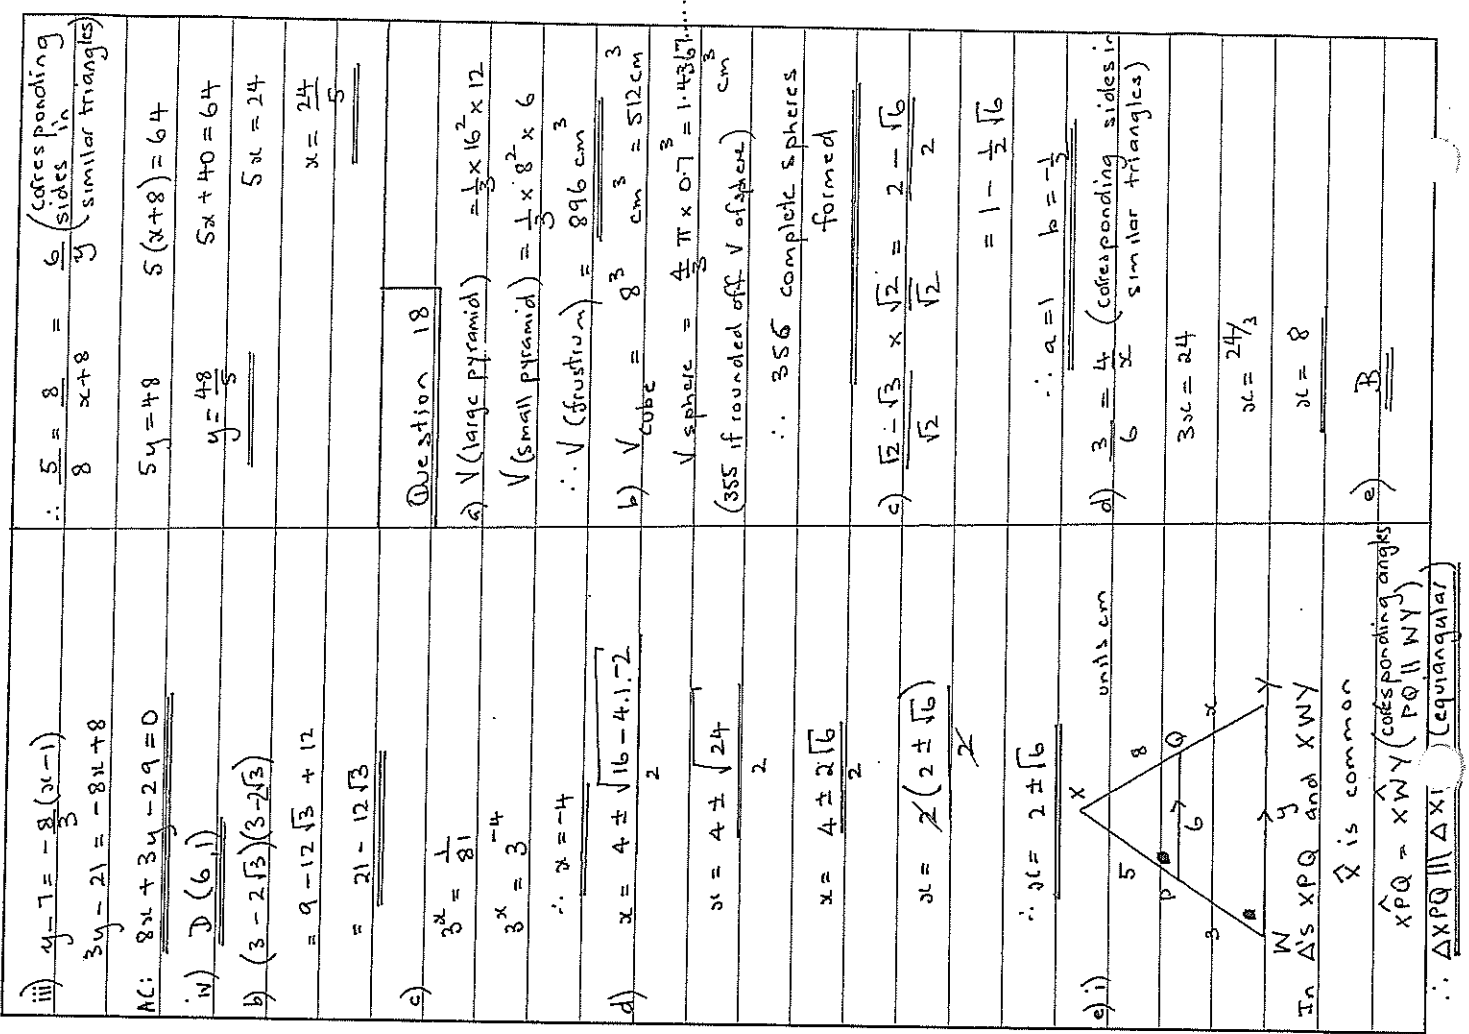 iii) y - 7 = -8/3 (x - 1)
3y - 21 = -8x + 8
AC: 8x + 3y - 29 = 0
iv) D (6, 1)
b) (3 - 2√3)(3 - 2√3)
= 9 - 12√3 + 12
= 21 - 12√3
c) 3^x = 1/81
3^x = 3^-4
∴ x = -4
d) x = 4 ± √16 - 4.1.-2 / 2
x = 4 ± √24 / 2
x = 4 ± 2√6 / 2
x = 2(2 ± √6) / 2
∴ x = 2 ± √6
e) i) units cm
X
5 8
P 6 Q
3 x
W y Y
In Δ's XPQ and XWY
X̂ is common
XP̂Q = XŴY (corresponding angles PQ || WY)
∴ ΔXPQ ||| ΔX (equiangular)
∴ 5/8 = 8/x+8 = 6/y (corresponding sides in similar triangles)
5y = 48 5(x+8) = 64
y = 48/5 5x + 40 = 64
5x = 24
x = 24/5
Question 18
a) V (large pyramid) = 1/3 x 16² x 12
V (small pyramid) = 1/3 x 8² x 6
∴ V (frustrum) = 896 cm³
b) V cube = 8³ cm³ = 512 cm³
V sphere = 4/3 π x 0.7³ = 1.4367..... cm³
(355 if rounded off V of sphere)
∴ 356 complete spheres formed
c) √2 - √3 / √2 x √2 / √2 = 2 - √6 / 2
= 1 - 1/2 √6
∴ a = 1 b = -1/2
d) 3/6 = 4/x (corresponding sides in similar triangles)
3x = 24
x = 24/3
x = 8
e) B